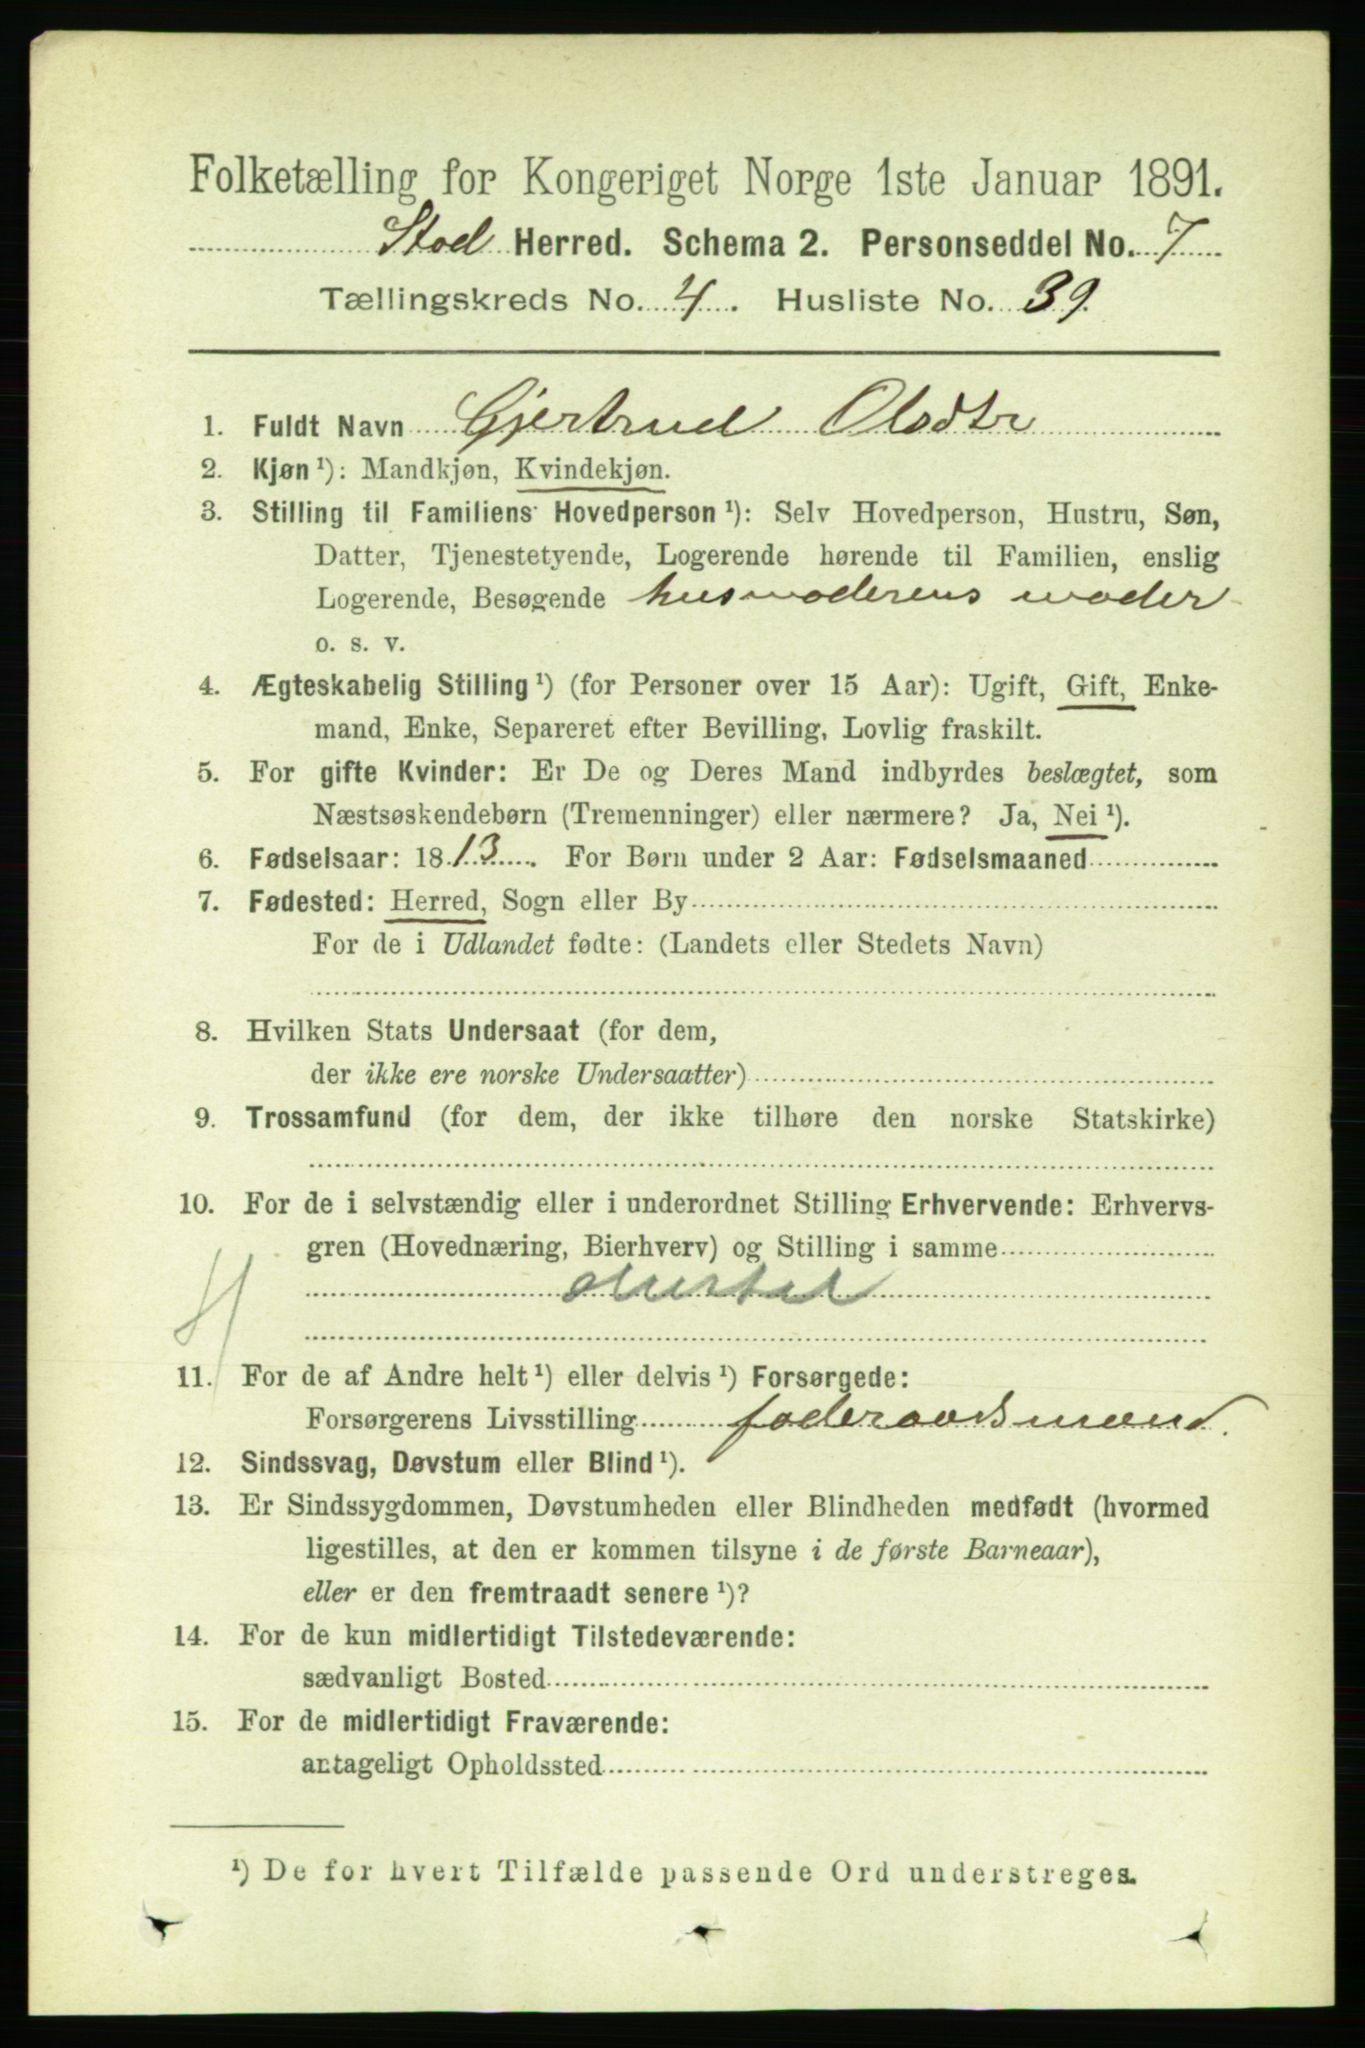 Folketælling for Kongeriget Norge 1ste Januar 1891.
Stod Herred. Schema 2. Personseddel No. 7
Tællingskreds No. 4. Husliste No. 39.
1. Fuldt Navn Gjertrud Olsdtr
2. Kjøn ¹): Mandkjøn, Kvindekjøn.
3. Stilling til Familiens Hovedperson ¹): Selv Hovedperson, Hustru, Søn,
Datter, Tjenestetyende, Logerende hørende til Familien, enslig
Logerende, Besøgende husmoderens moder
o. s. v.
4. Ægteskabelig Stilling ¹) (for Personer over 15 Aar): Ugift, Gift, Enke-
mand, Enke, Separeret efter Bevilling, Lovlig fraskilt.
5. For gifte Kvinder: Er De og Deres Mand indbyrdes beslægtet, som
Næstsøskendebørn (Tremenninger) eller nærmere? Ja, Nei ¹).
6. Fødselsaar: 1813. For Børn under 2 Aar: Fødselsmaaned
7. Fødested: Herred, Sogn eller By
For de i Udlandet fødte: (Landets eller Stedets Navn)
8. Hvilken Stats Undersaat (for dem,
der ikke ere norske Undersaatter)
9. Trossamfund (for dem, der ikke tilhøre den norske Statskirke)
10. For de i selvstændig eller i underordnet Stilling Erhvervende: Erhvervs-
gren (Hovednæring, Bierhverv) og Stilling i samme
H
11. For de af Andre helt ¹) eller delvis ¹) Forsørgede:
Forsørgerens Livsstilling foderaadsmand.
12. Sindssvag, Døvstum eller Blind ¹).
13. Er Sindssygdommen, Døvstumheden eller Blindheden medfødt (hvormed
ligestilles, at den er kommen tilsyne i de første Barneaar),
eller er den fremtraadt senere ¹)?
14. For de kun midlertidigt Tilstedeværende:
sædvanligt Bosted
15. For de midlertidigt Fraværende:
antageligt Opholdssted
¹) De for hvert Tilfælde passende Ord understreges.